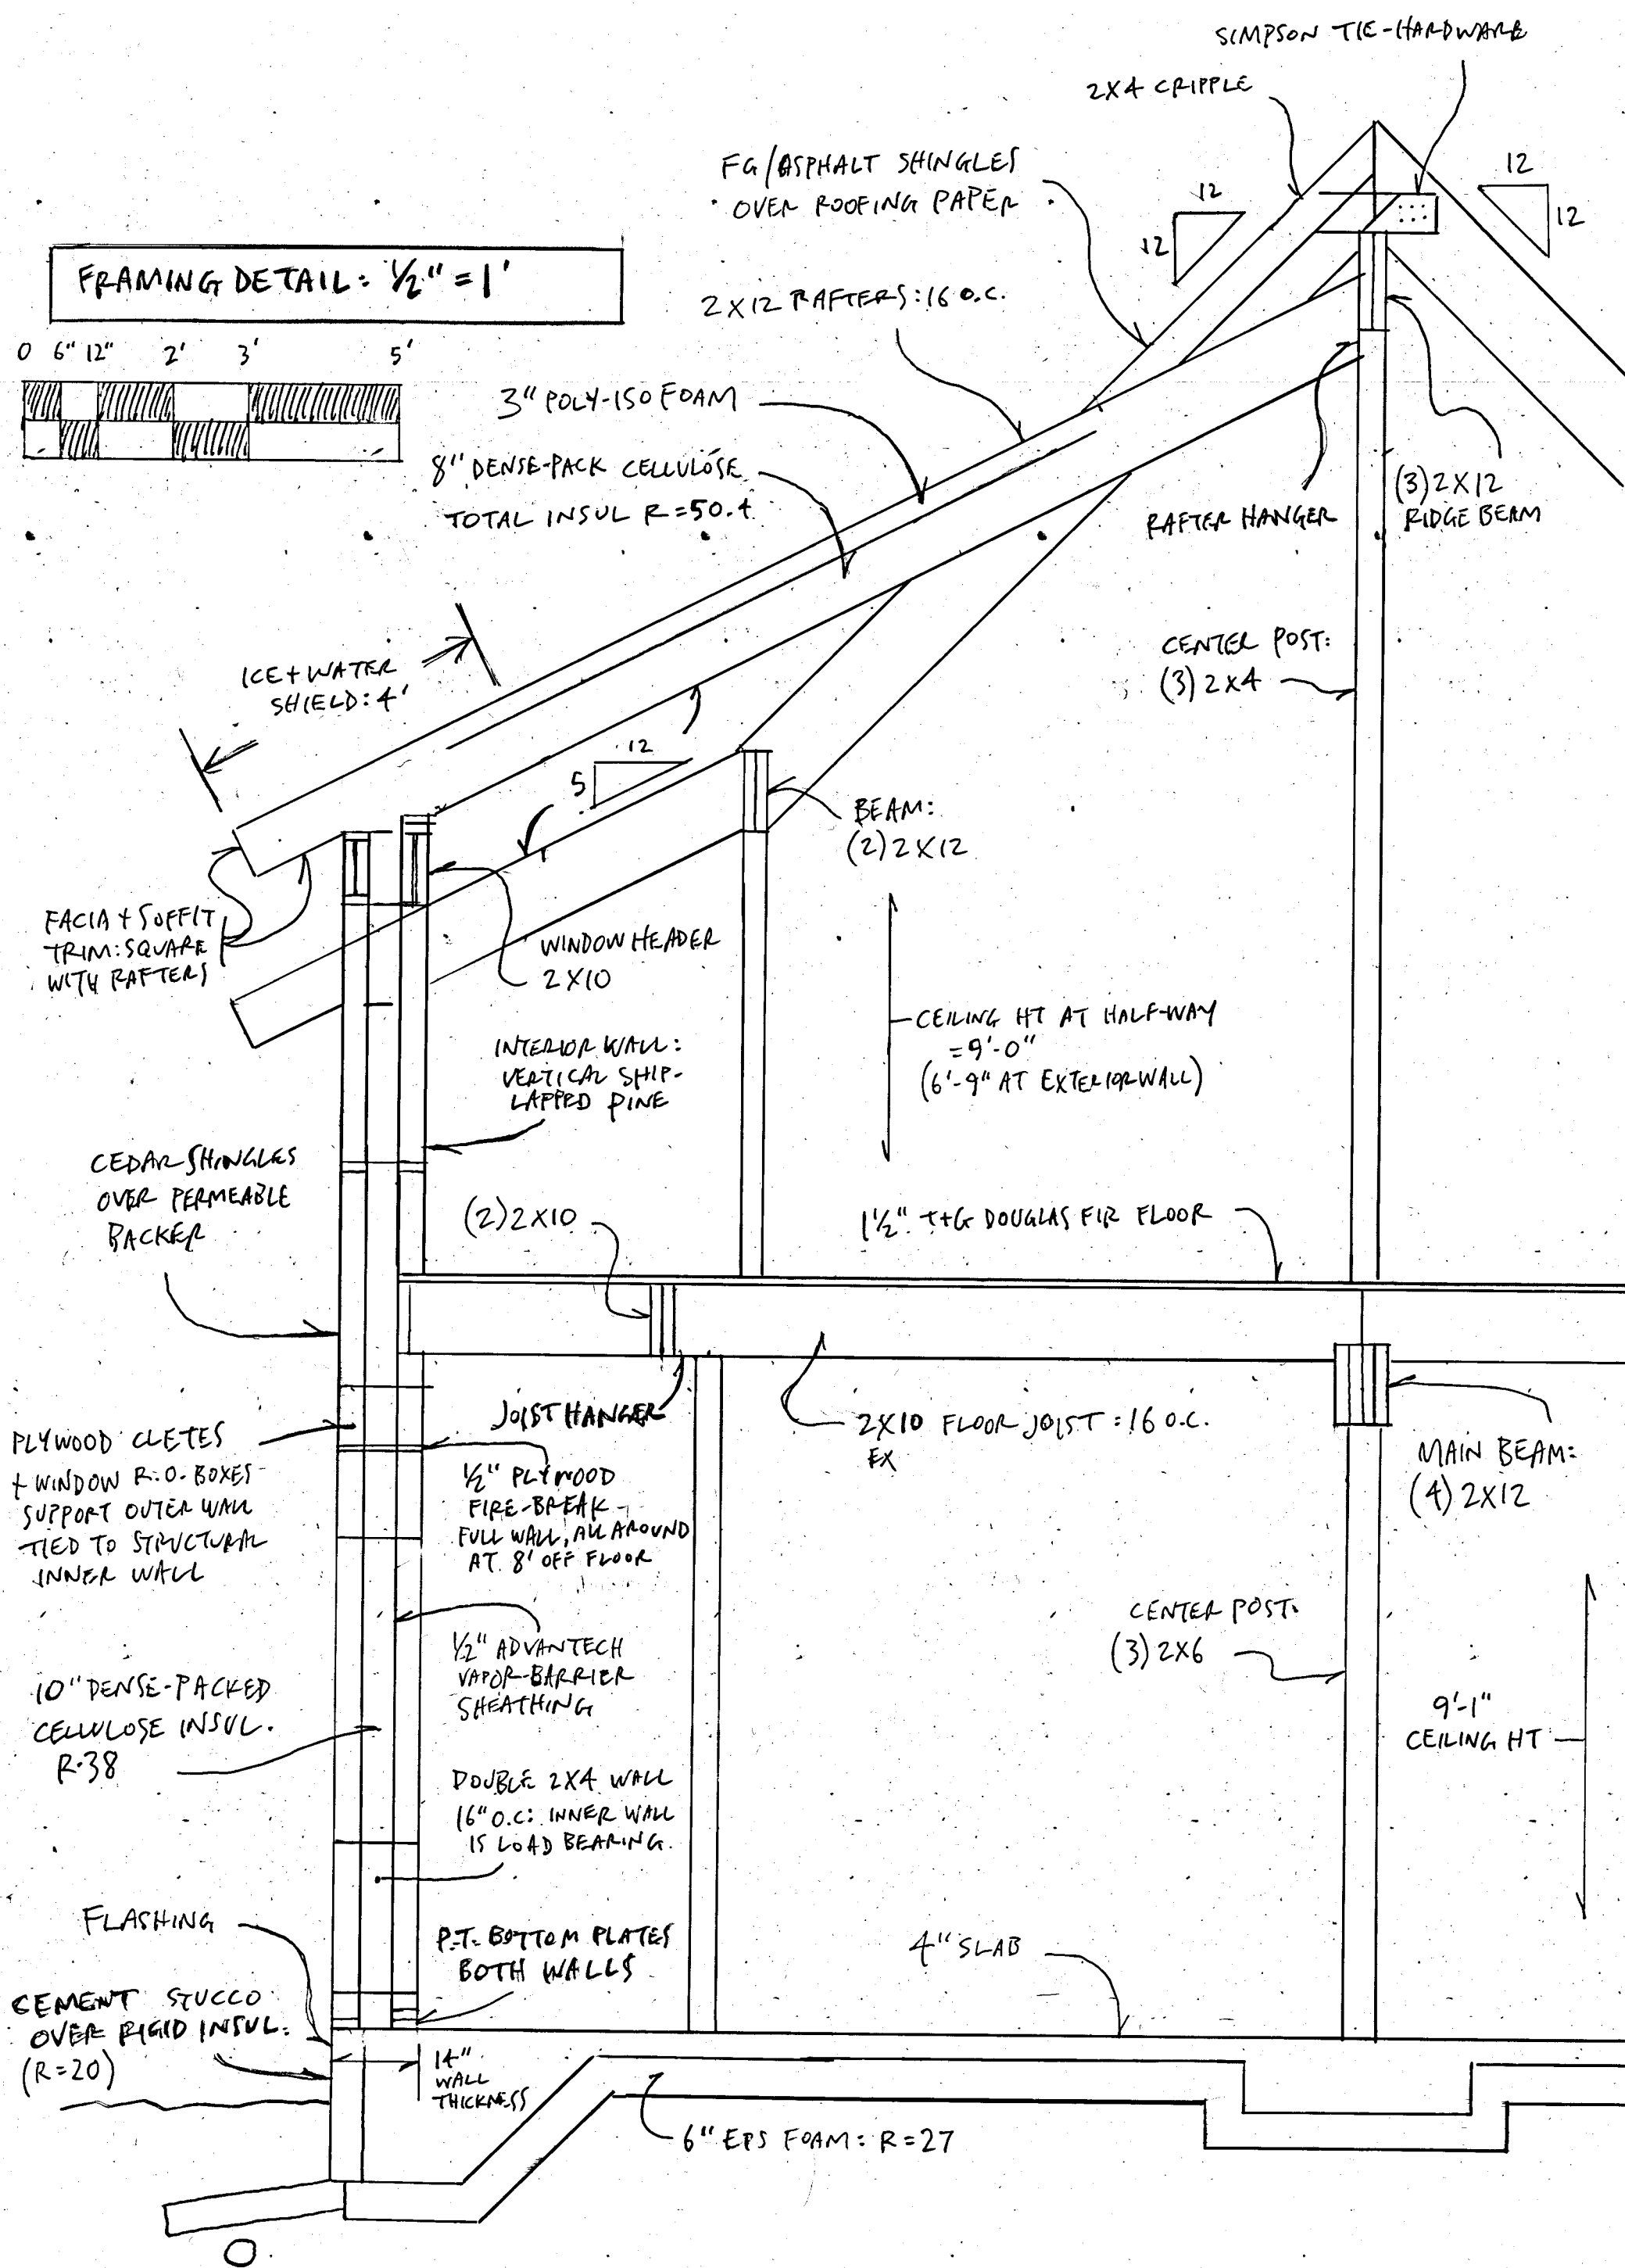 SIMPSON TIE-HARDWARE
2X4 CRIPPLE
FG/ASPHALT SHINGLES
OVER ROOFING PAPER
12
12
12
12
FRAMING DETAIL: 1/2" = 1'
0 6" 12" 2' 3' 5'
2X12 RAFTERS: 16 O.C.
3" POLY-ISO FOAM
8" DENSE-PACK CELLULOSE
TOTAL INSUL R=50.4
RAFTER HANGER
(3) 2X12
RIDGE BEAM
ICE + WATER
SHIELD: 4'
CENTER POST:
(3) 2X4
12
5
BEAM:
(2) 2X12
FACIA + SOFFIT
TRIM: SQUARE
WITH RAFTERS
WINDOW HEADER
2X10
CEILING HT AT HALF-WAY
=9'-0"
(6'-9" AT EXTERIOR WALL)
INTERIOR WALL:
VERTICAL SHIP-
LAPPED PINE
CEDAR SHINGLES
OVER PERMEABLE
BACKER
(2) 2X10
1 1/2" T+G DOUGLAS FIR FLOOR
JOIST HANGER
2X10 FLOOR JOIST: 16 O.C.
EX
PLYWOOD CLETES
+ WINDOW R.O. BOXES
SUPPORT OUTER WALL
TIED TO STRUCTURAL
INNER WALL
1/2" PLYWOOD
FIRE-BREAK -
FULL WALL, ALL AROUND
AT 8' OFF FLOOR
MAIN BEAM:
(4) 2X12
1/2" ADVANTECH
VAPOR-BARRIER
SHEATHING
CENTER POST:
(3) 2X6
10" DENSE-PACKED
CELLULOSE INSUL.
R-38
9'-1"
CEILING HT
DOUBLE 2X4 WALL
16" O.C: INNER WALL
IS LOAD BEARING.
FLASHING
P.T. BOTTOM PLATES
BOTH WALLS
4" SLAB
CEMENT STUCCO
OVER RIGID INSUL.
(R=20)
14"
WALL
THICKNESS
6" EPS FOAM: R=27